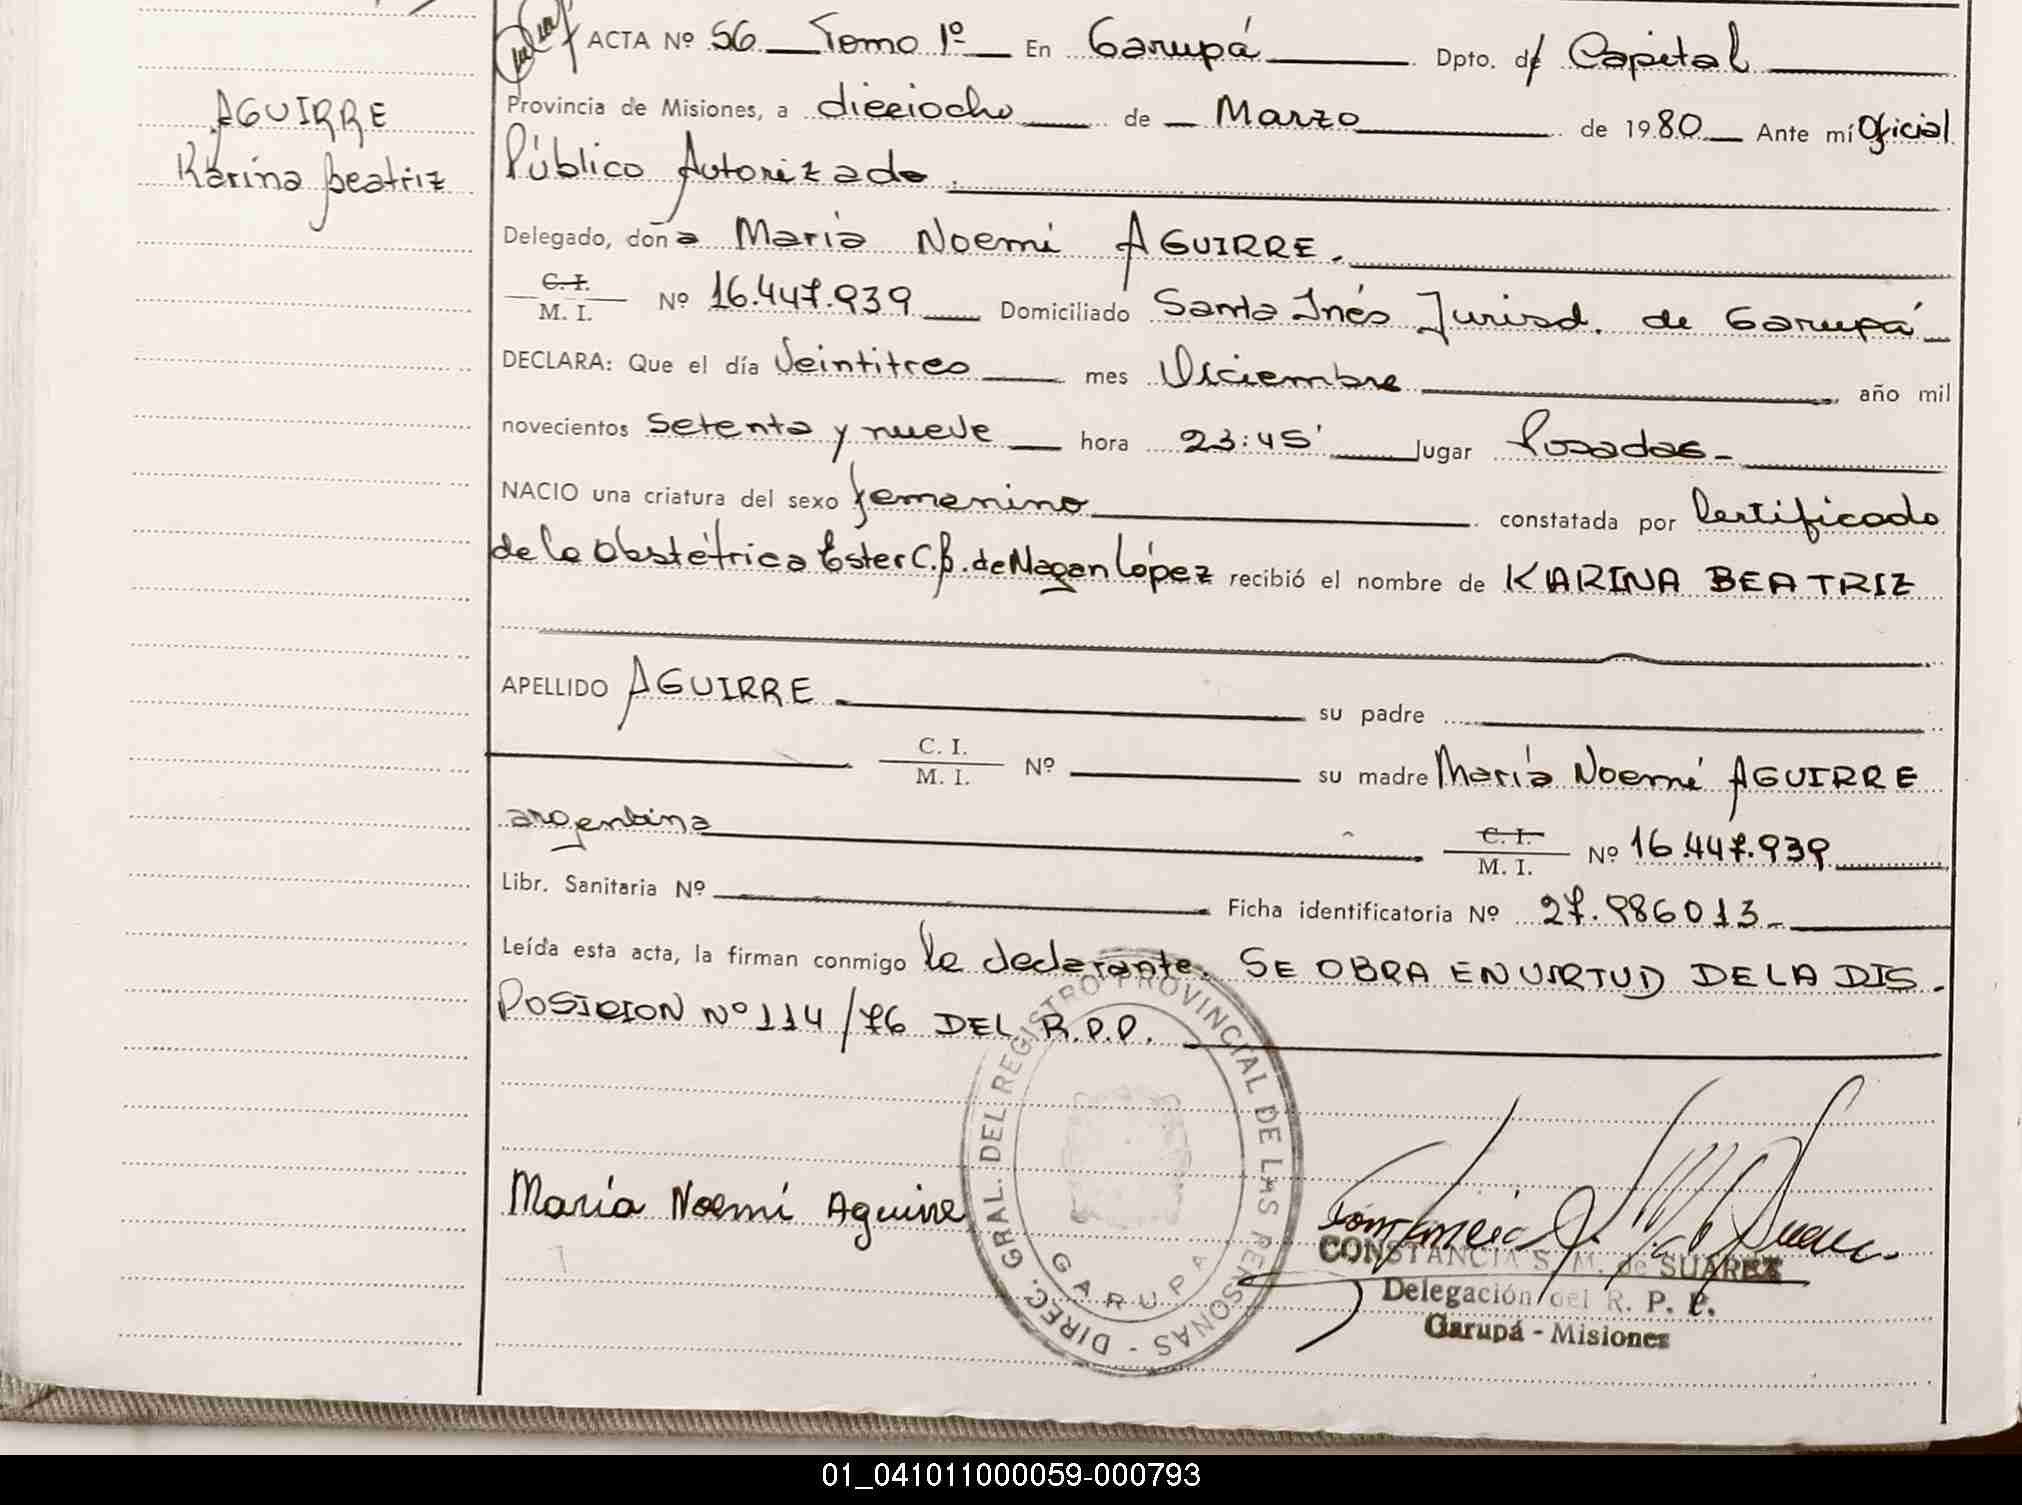 ACTA Nº 56 Tomo 1º En Garupá Dpto. de Capital
AGUIRRE
Karina Beatriz
Provincia de Misiones, a dieciocho de Marzo de 1980 Ante mí Oficial
Público Autorizado.
Delegado, doña Maria Noemi AGUIRRE.
C. I.
M. I. Nº 16.447.939 Domiciliado Santa Inés Jurisd. de Garupá
DECLARA: Que el día Veintitres mes Diciembre año mil
novecientos setenta y nueve hora 23:45' lugar Posadas-
NACIO una criatura del sexo femenino constatada por Certificado
de la Obstétrica Ester C. B. de López recibió el nombre de KARINA BEATRIZ
APELLIDO AGUIRRE su padre
C. I.
M. I. Nº su madre María Noemí AGUIRRE
argentina C. I.
M. I. Nº 16.447.939
Libr. Sanitaria Nº Ficha identificatoria Nº 27.986013-
Leída esta acta, la firman conmigo la declarante. SE OBRA EN VIRTUD DE LA DIS-
POSICION Nº 114/76 DEL R.P.P.
DIREC. GRAL. DEL REGISTRO PROVINCIAL DE LAS PERSONAS -
GARUPA
María Noemí Aguirre
CONSTANCIA S. M. de SUAREZ
Delegación del R. P. P.
Garupá - Misiones
01_041011000059-000793